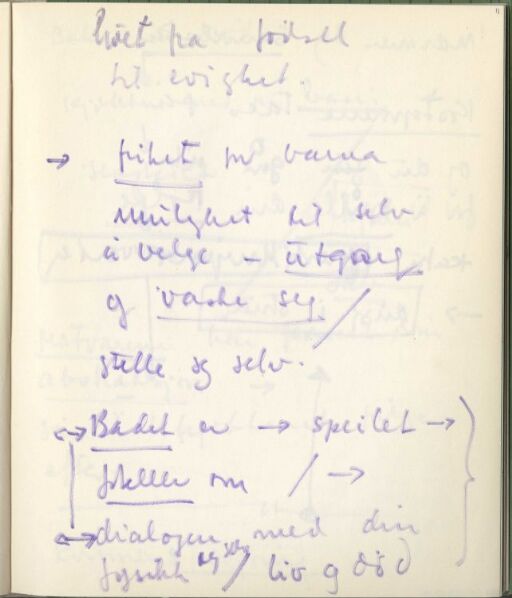 livet fra fødsel
til evighet.
→ frihet for barna
mulighet til selv
å velge – utgang
og vaske seg /
stelle seg selv.
↔ Badet er → speilet →
forteller om / →
↔ dialogen med din
fysikk og selv / liv og død